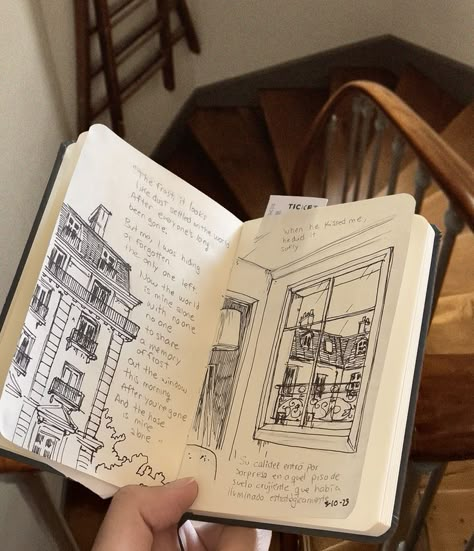 the frost it looks
like dust settled on the world
After everyone's long
been gone.
But me, I was hiding
or forgotten
the only one left
Now the world
is mine alone
With no one
no one
to share
a memory
of frost
out the window
this morning
After you're gone
And the house
is mine
alone."
TICKET
when he kissed me,
he did it
Su calidez entró por
sorpresa en aquel piso de
suelo crujiente que había
iluminado estratégicamente
8-10-23